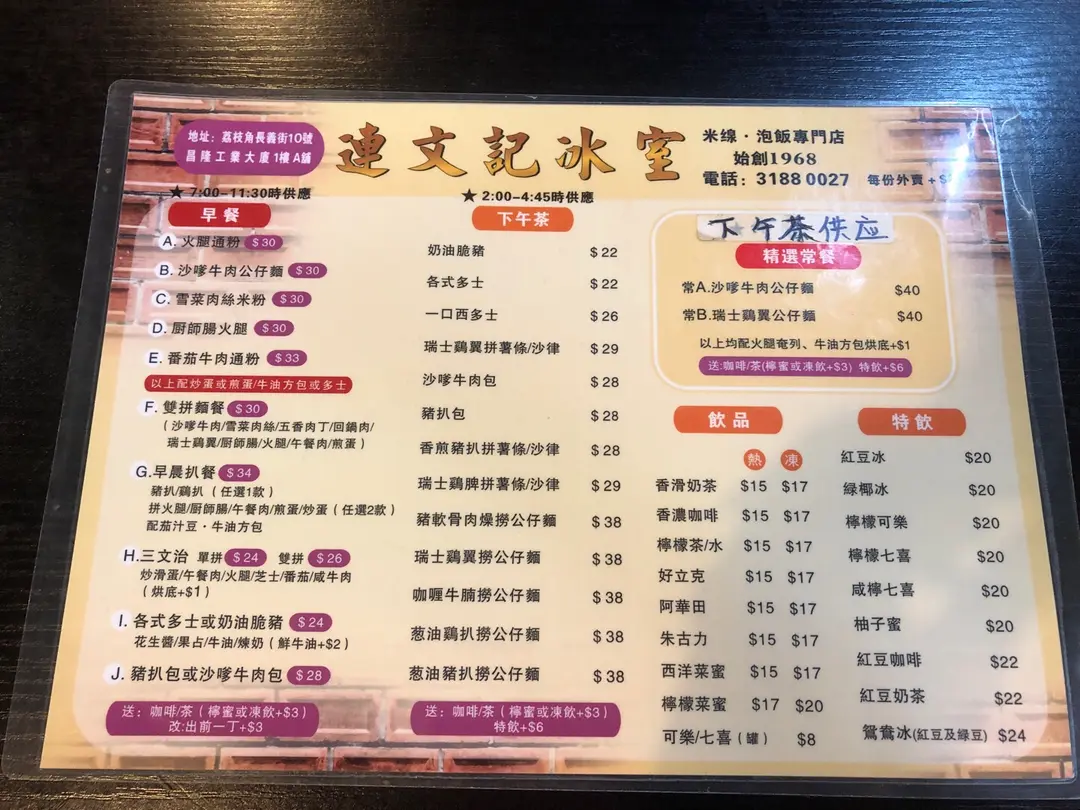 地址：荔枝角長義街10號
昌隆工業大廈1樓A舖
連文記冰室
米線·泡飯專門店
始創1968
電話：3188 0027 每份外賣+$
★ 7:00-11:30時供應
早餐
A. 火腿通粉 $30
B. 沙嗲牛肉公仔麵 $30
C. 雪菜肉絲米粉 $30
D. 厨師腸火腿 $30
E. 番茄牛肉通粉 $33
以上配炒蛋或煎蛋/牛油方包或多士
F. 雙拼麵餐 $30
（沙嗲牛肉/雪菜肉絲/五香肉丁/回鍋肉/
瑞士鷄翼/厨師腸/火腿/午餐肉/煎蛋）
G.早晨扒餐 $34
豬扒/鷄扒（任選1款）
拼火腿/厨師腸/午餐肉/煎蛋/炒蛋（任選2款）
配茄汁豆·牛油方包
H.三文治 單拼 $24 雙拼 $26
炒滑蛋/午餐肉/火腿/芝士/番茄/咸牛肉
（烘底+$1）
I. 各式多士或奶油脆豬 $24
花生醬/果占/牛油/煉奶（鮮牛油+$2）
J. 豬扒包或沙嗲牛肉包 $28
送：咖啡/茶（檸蜜或凍飲+$3）
改:出前一丁+$3
★ 2:00-4:45時供應
下午茶
奶油脆豬 $22
各式多士 $22
一口西多士 $26
瑞士鷄翼拼薯條/沙律 $29
沙嗲牛肉包 $28
豬扒包 $28
香煎豬扒拼薯條/沙律 $28
瑞士鷄髀拼薯條/沙律 $29
豬軟骨肉燥撈公仔麵 $38
瑞士鷄翼撈公仔麵 $38
咖喱牛腩撈公仔麵 $38
葱油鷄扒撈公仔麵 $38
葱油豬扒撈公仔麵 $38
送：咖啡/茶（檸蜜或凍飲+$3）
特飲+$6
下午茶供应
精選常餐
常A.沙嗲牛肉公仔麵 $40
常B.瑞士鷄翼公仔麵 $40
以上均配火腿奄列、牛油方包烘底+$1
送:咖啡/茶(檸蜜或凍飲+$3) 特飲+$6
飲品
熱 凍
香滑奶茶 $15 $17
香濃咖啡 $15 $17
檸檬茶/水 $15 $17
好立克 $15 $17
阿華田 $15 $17
朱古力 $15 $17
西洋菜蜜 $15 $17
檸檬菜蜜 $17 $20
可樂/七喜（罐） $8
特飲
紅豆冰 $20
绿椰冰 $20
檸檬可樂 $20
檸檬七喜 $20
咸檸七喜 $20
柚子蜜 $20
紅豆咖啡 $22
紅豆奶茶 $22
鴛鴦冰(紅豆及綠豆) $24